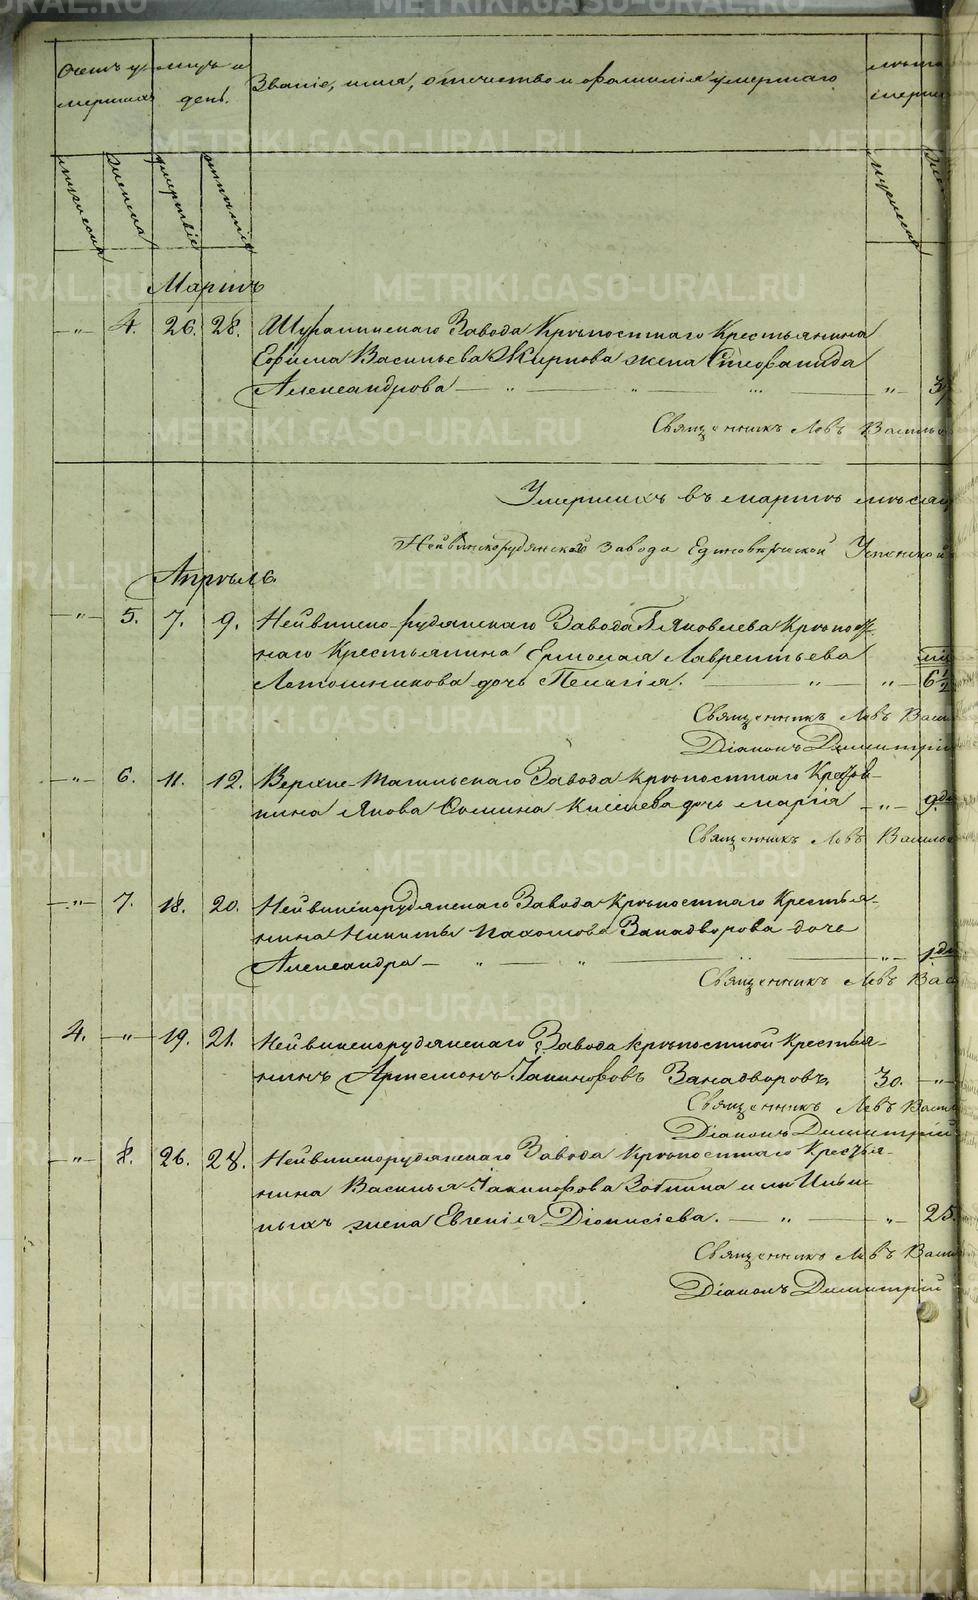 Счетъ у- мѣсяцъ и Званіе, имя, отчество и фамилія умершаго лѣта
мершихъ день. умерш
мужеска женска смерти погребенія мужеска
Мартъ
-"- 4. 26. 28. Шуралинскаго Завода Крѣпостнаго Крестьянина
Ефима Васильева Жиркова жена Стефанида
Александрова — " — " — " — "
Священникъ Левъ Василье
Умершихъ въ мартѣ мѣсяц
Нейвинскорудянскаго завода Единовѣрческой Успенской
Апрѣль.
-"- 5. 7. 9. Нейвинско-рудянскаго Завода Г. Яковлева Крѣпост-
наго Крестьянина Ермолая Лаврентьева
Лотошникова дочь Пелагія. — " — " — 6 1/2
Священникъ Левъ Васил
Діаконъ Димитрій
-"- 6. 11. 12. Верхне-Тагильскаго Завода крѣпостнаго Крестья-
нина Якова Фомина дочь Марія -"- 9 дн
Священникъ Левъ Василье
-"- 7. 18. 20. Нейвинскорудянскаго Завода Крѣпостнаго Крестья-
нина Никиты Пахомова Занадворова дочь
Александра — " — " — " -"- 1 дн
Священникъ Левъ Вас
4. -"- 19. 21. Нейвинскорудянскаго Завода крѣпостной Крестья-
нинъ Артемонъ Іакинфовъ Занадворовъ. 30. -"-
Священникъ Левъ Васил
Діаконъ Димитрій
-"- 8. 26. 28. Нейвинскорудянскаго Завода Крѣпостнаго Крестья-
нина Василья Іакинфова
ныхъ жена Евгенія Діонисіева. — " — " — 25.
Священникъ Левъ Васил
Діаконъ Димитрій
METRIKI.GASO-URAL.RU